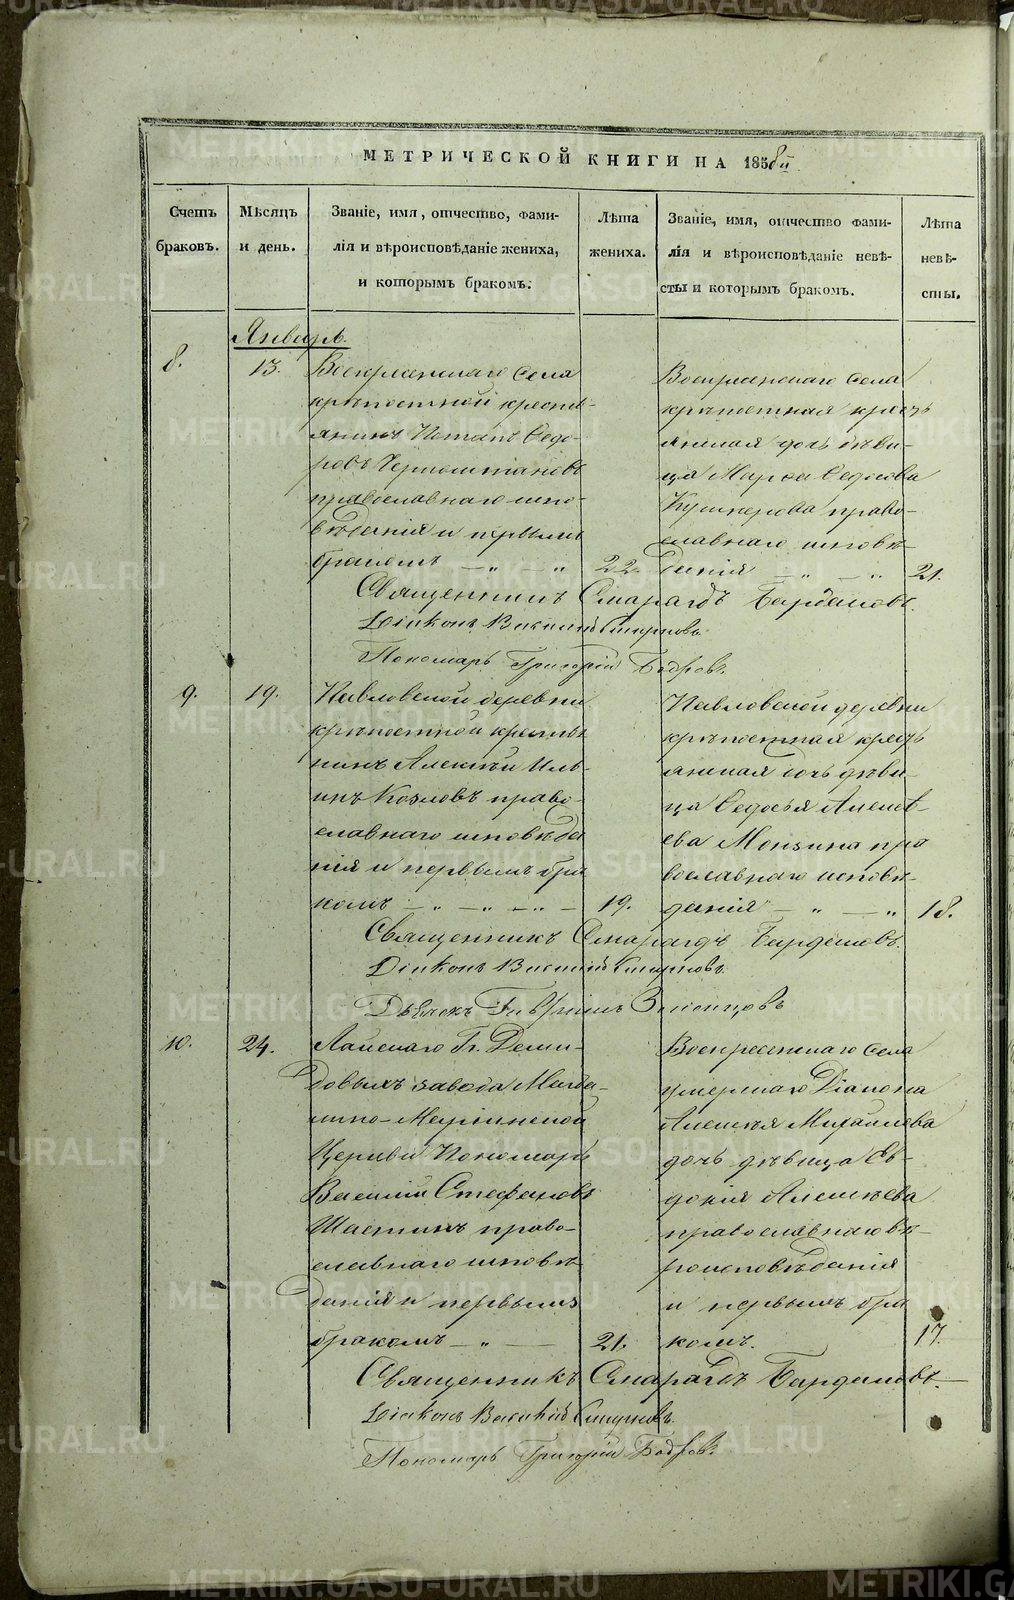 МЕТРИЧЕСКОЙ КНИГИ НА 1858й
Счетъ браковъ.
Мѣсяцъ и день.
Званіе, имя, отчество, фами-
лія и вѣроисповѣданіе жениха,
и которымъ бракомъ.
Лѣта жениха.
Званіе, имя, отчество фами-
лія и вѣроисповѣданіе невѣ-
сты и которымъ бракомъ.
Лѣта невѣ-
сты.
Январь
8.
13.
Воскресенскаго села
крѣпостной кресть-
янинъ Потапъ Ѳедо-
ровъ
православнаго испо-
вѣданія и первымъ
бракомъ — „ — „
22.
Воскресенскаго села
крѣпостная кресть
янская дочь дѣви-
ца Марѳа Ѳедосова
Кушнерова право-
славнаго исповѣ-
данія — „ — „
21.
Священникъ Смарагдъ Бардаковъ.
Діаконъ Василій Смирновъ.
Пономарь Григорій Бобровъ.
9.
19.
Павловской деревни
крѣпостной крестья
нинъ Алексѣй Иль-
инъ Козловъ право-
славнаго исповѣда
нія и первымъ бра
комъ — „ — „ — „ —
19.
Павловской деревни
крѣпостная кресть
янская дочь дѣви-
ца Ѳедосья Алексѣ-
ева Монзина пра
вославнаго исповѣ-
данія — „ — „
18.
Священникъ Смарагдъ Бардаковъ.
Діаконъ Василій Смирновъ.
Дьячекъ Гавріилъ
10.
24.
Лайскаго Гг. Деми-
довыхъ завода Магда-
лино-Маріинской
Церкви Пономарь
Василій Стефановъ
Шастинъ право-
славнаго исповѣ-
данія и первымъ
бракомъ — „ —
21.
Воскресенскаго села
умершаго Діакона
Алексѣя Михайлова
дочь дѣвица Ев-
докія Алексѣева
православнаго вѣ-
роисповѣданія
и первымъ бра
комъ.
17.
Священникъ Смарагдъ Бардаковъ.—
Діаконъ Василій Смирновъ.
Пономарь Григорій Бобровъ.
METRIKI.GASO-URAL.RU